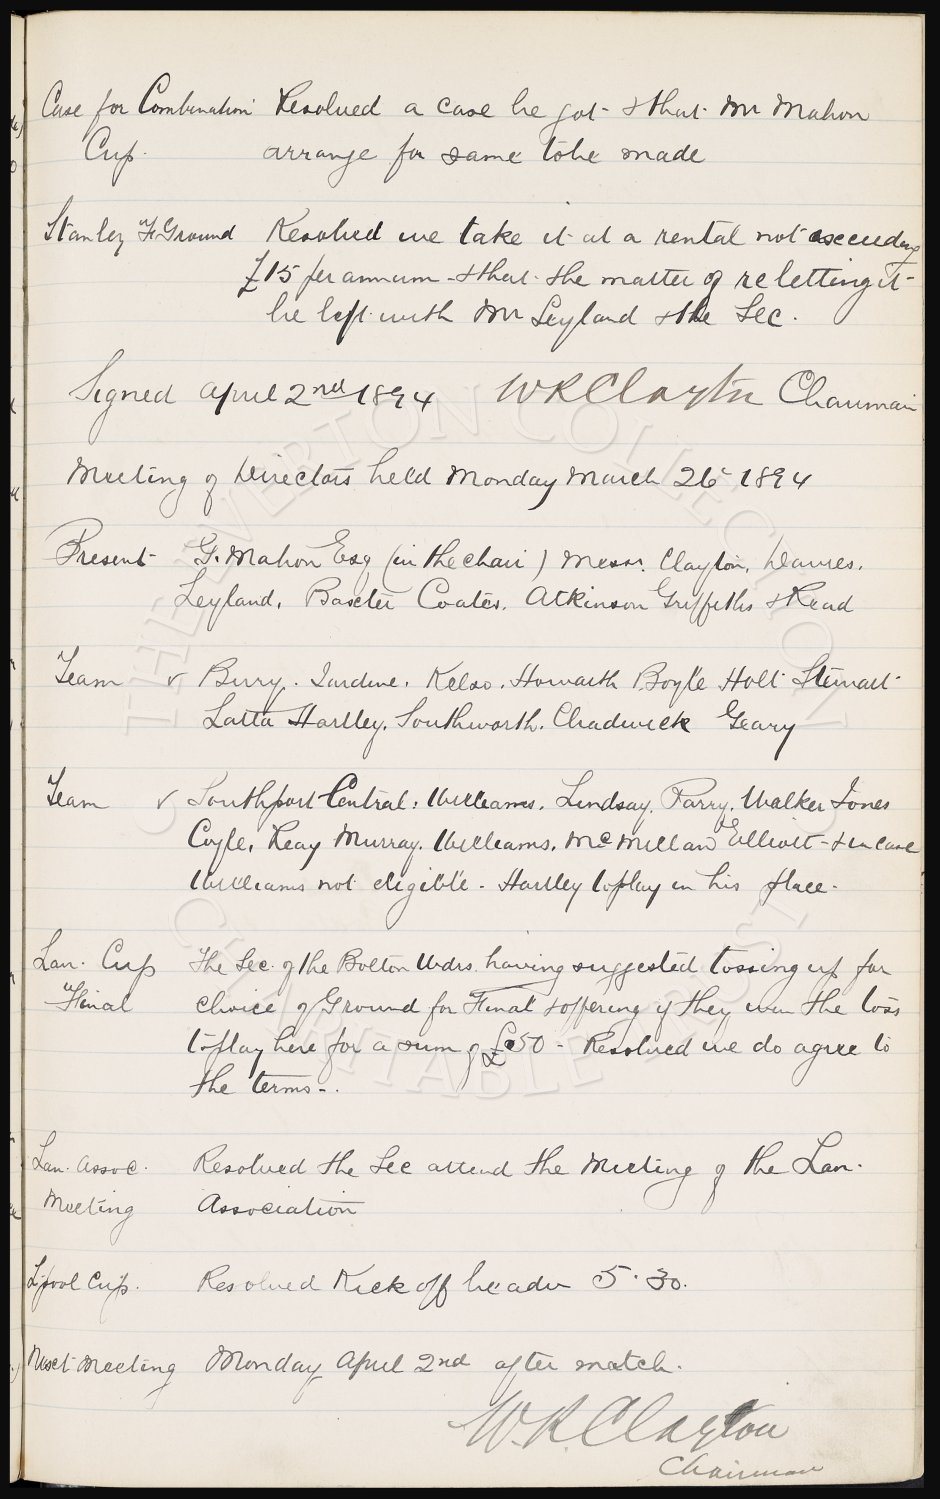 Case for Combination Resolved a case be got & that Mr Mahon
Cup. arrange for same to be made
Stanley F. Ground Resolved we take it at a rental not exceeding
£15 per annum & that the matter of reletting it
be left with Mr Leyland & the Sec.
Signed April 2nd 1894 WR Clayton Chairman
Meeting of Directors held Monday March 26 1894
Present G. Mahon Esq (in the chair) Messr. Clayton, Davies,
Leyland, Baxter Coates, Atkinson Griffiths & Read
Team v Bury. Jardine, Kelso, Howarth Boyle Holt Stewart
Latta Hartley, Southworth, Chadwick Geary
Team v Southport Central: Williams, Lindsay, Parry, Walker Jones
Coyle, Reay Murray, Williams, McMillan Elliott - & in case
Williams not eligible - Hartley to play in his place.
Lan. Cup The Sec. of the Bolton Wdrs. having suggested tossing up for
Final choice of Ground for Final & offering if they win the toss
to play here for a sum of £50 - Resolved we do agree to
the terms -.
Lan. Assoc. Resolved the Sec attend the Meeting of the Lan.
Meeting Association
L'pool Cup. Resolved Kick off be adv 5.30.
Next Meeting Monday April 2nd after match.
W.R. Clayton
Chairman
THE EVERTON COLLECTION
CHARITABLE TRUST